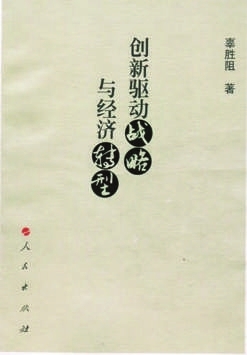 辜胜阻 著
创新驱动战略
与经济转型
人民出版社